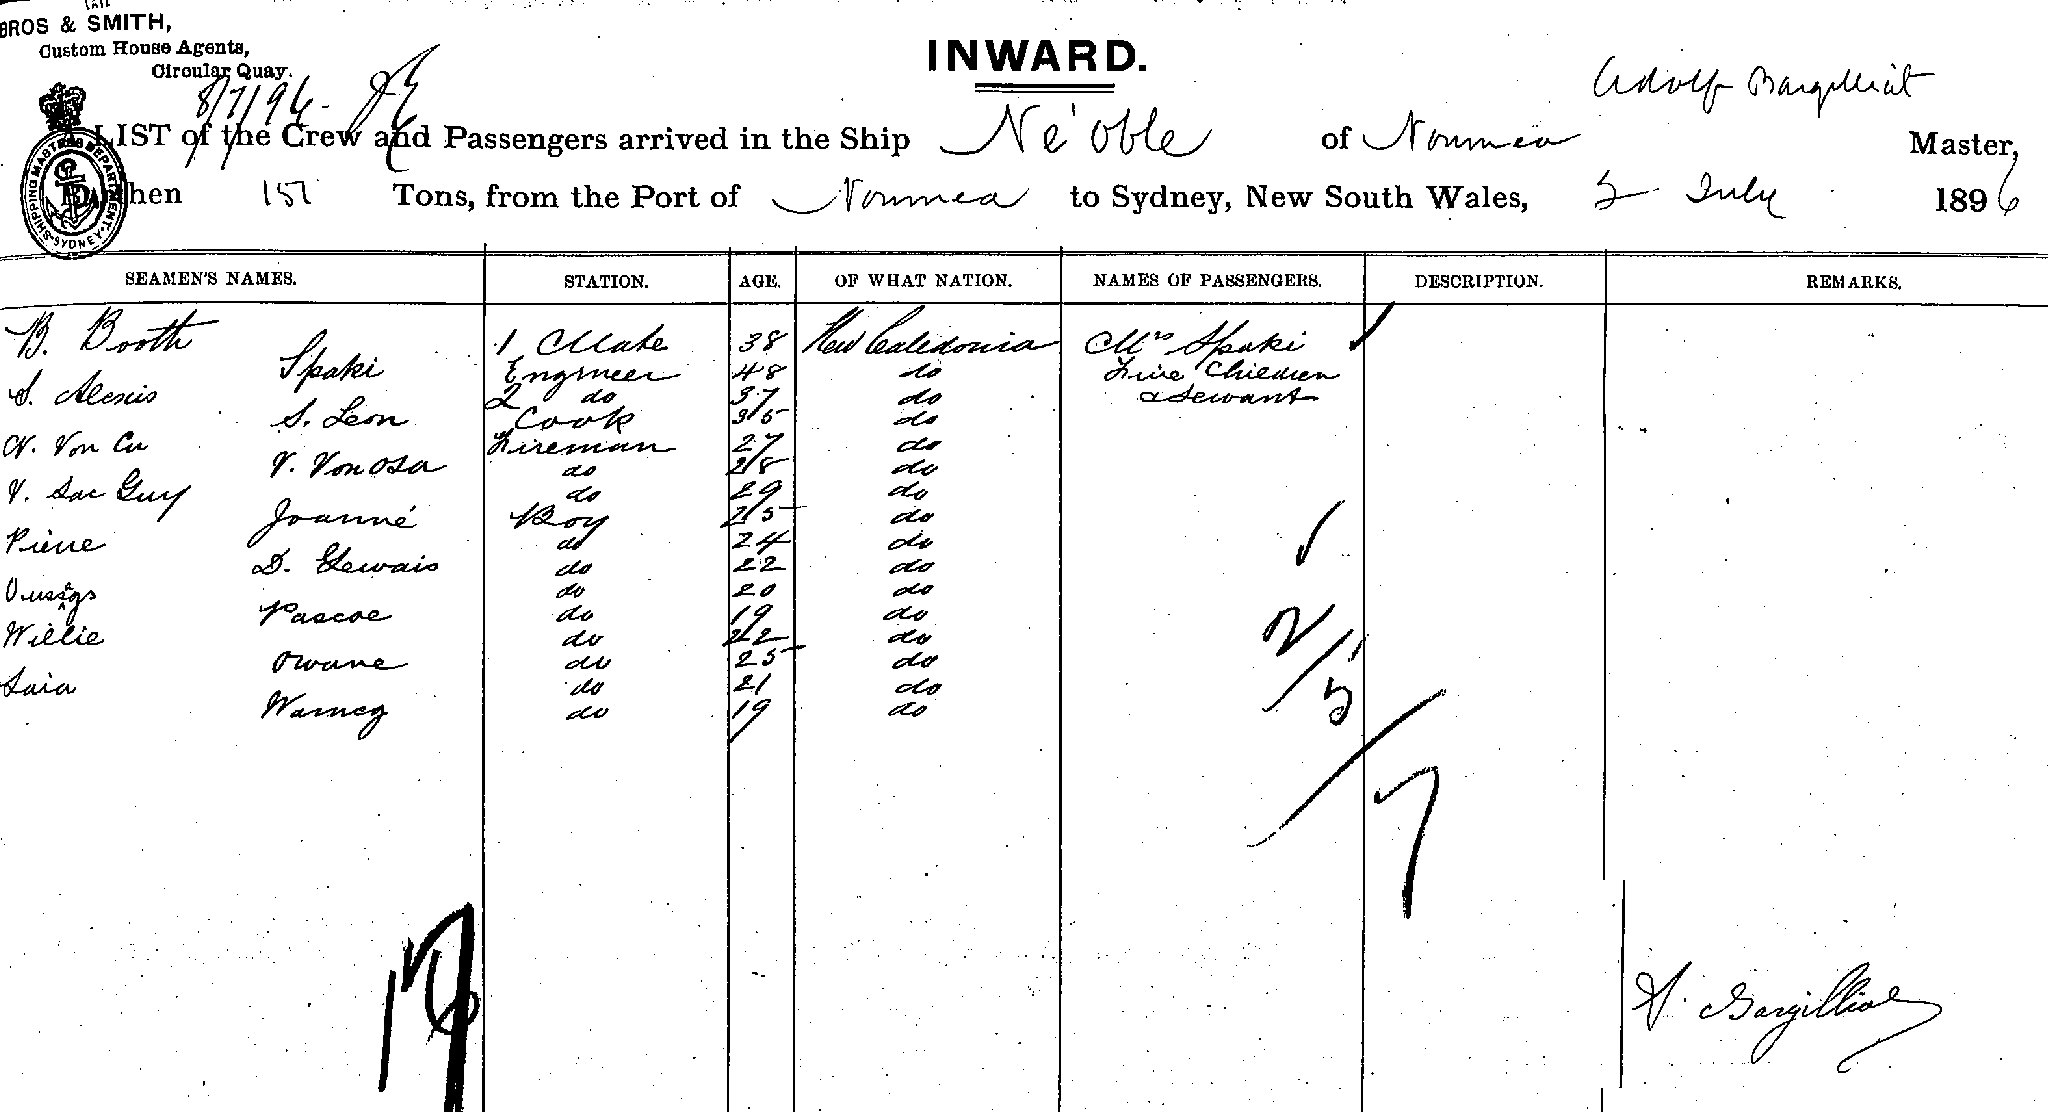 BROS & SMITH,
Custom House Agents,
Circular Quay.
8/7/96
INWARD.
Adolf Bargilliat
LIST of the Crew and Passengers arrived in the Ship Né'oble of Noumea Master,
Burthen 151 Tons, from the Port of Noumea to Sydney, New South Wales, 2 July 1896
SHIPPING MASTERS DEPARTMENT. SYDNEY
SEAMEN'S NAMES. STATION. AGE. OF WHAT NATION. NAMES OF PASSENGERS. DESCRIPTION. REMARKS.
B. Booth 1 Mate 38 New Caledonia Mrs Spaki
Spaki Engineer 48 do Five Children
S. Alexis 2 do 37 do & Servant
S. Leon Cook 35 do
N. Von Cu Fireman 27 do
V. Von Osa do 28 do
V. Sac Guy do 29 do
Joanné Boy 25 do
Pierre do 24 do
D. Gervais do 22 do
do 20 do
Pascoe do 19 do
Willie do 22 do
Owane do 25 do
Saia do 21 do
Wameg do 19 do
2/5
7
A. Bargilliat